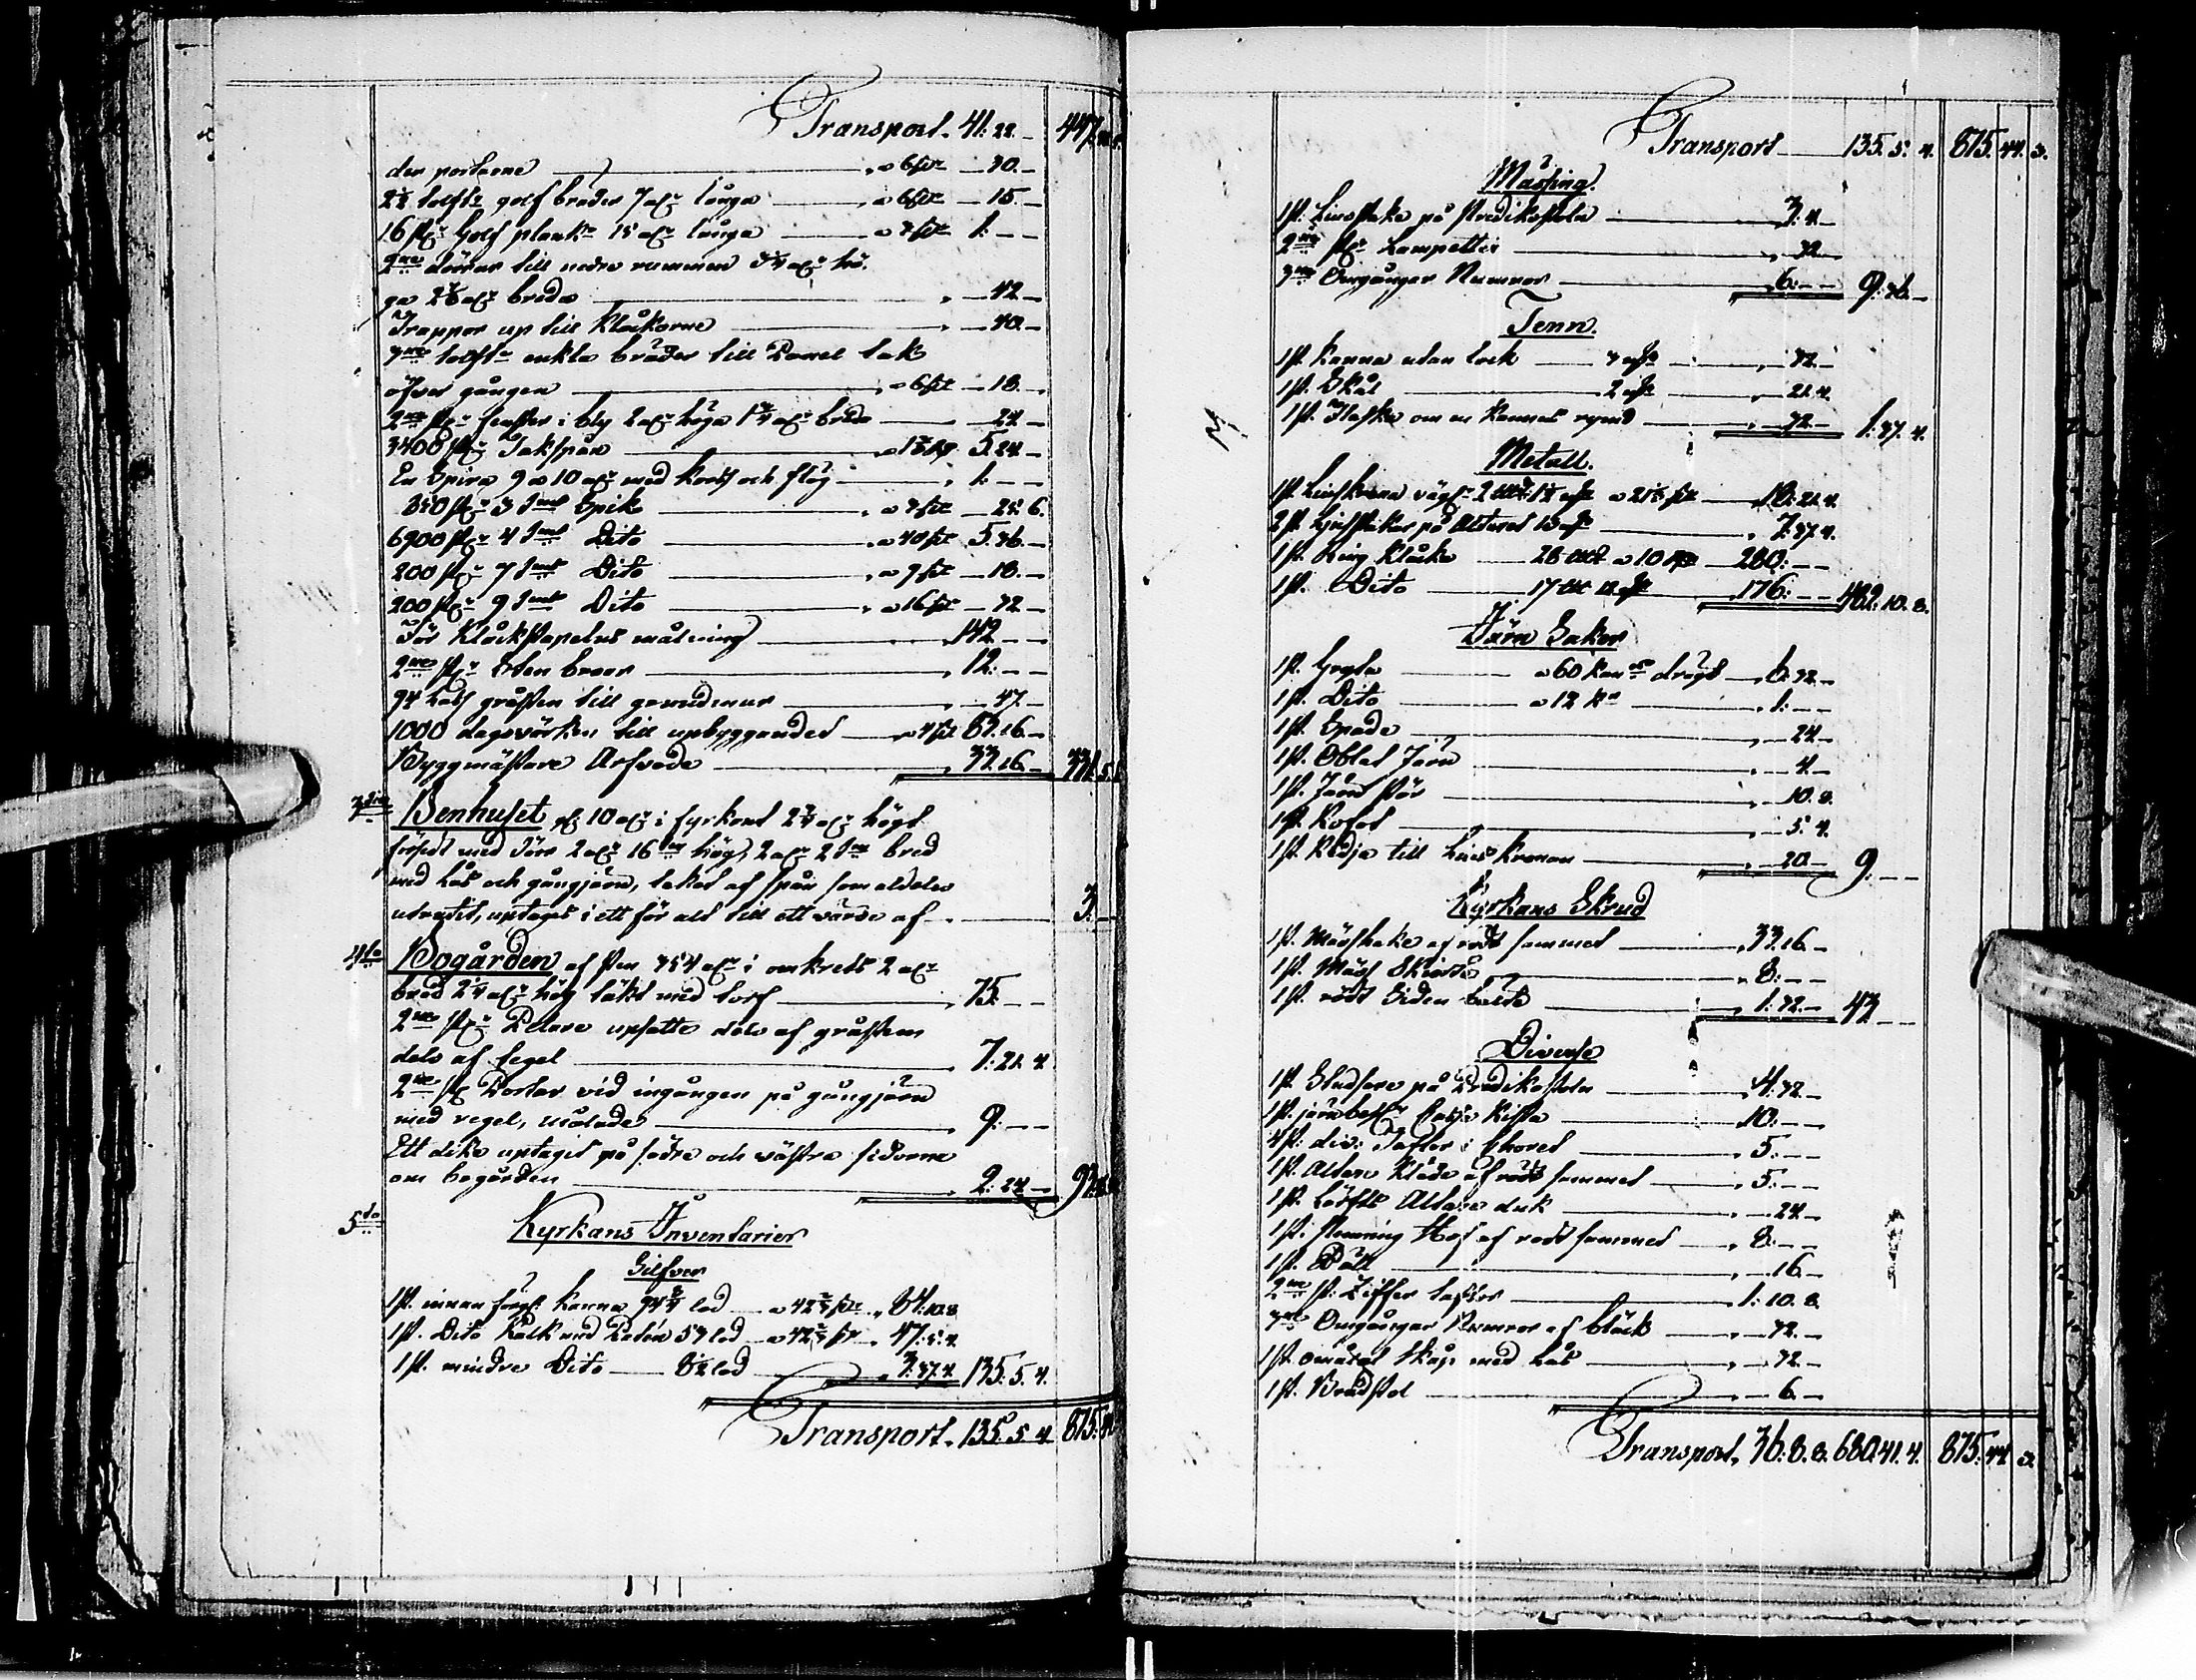 Transport. 41: 22. — 447
der portarne — a 6 sk — 30. —
2½ tolft golf bräder 7 aln långa — a 6 sk — 15. —
16 st golf plank 15 aln långa — a 3 sk 1: — —
2ne dörrar till nedre rummen 3¼ aln hö-
ga breda — 42 —
Trappor up till klåckorne — 40. —
3ne tolfter enkla bräder till Panel tak
öfver gången — a 6 sk — 18. —
2ne st fenster i bly 2 aln höga aln breda — 24 —
3400 st Takspån — 5. 24. —
En Spira 9 a 10 aln med kors och flög — 1: — —
350 st 3 tums Spik — a 3 sk — 25: 6.
6900 st 4 tums Dito — a 40 sk 5. 36. —
200 st 7 tums Dito — a 9 sk — 18. —
200 st 9 tums Dito — a 16 sk — 32 —
För Klåckstapelns målning — 142 — —
2ne st Sten broar — 12: — —
94 lass gråsten till grundmur — 47. —
1000 dagsvärken till upbyggandet — a 4 sk 83. 16. —
Byggmästare Arfvode — 33. 16. — 331. 5.
3tio Benhuset 10 aln i fyrkant aln högt
försedt med dör 2 aln 16 tum hög, 2 aln 2 tum bred
med lås och gångjärn, taket af spån som aldeles
utrutit, uptages i ett för alt till ett värde af — 3. —
4to Bogården af sten 354 aln i omkrets 2 aln
bred 2¼ aln hög täkt med torf — 75. — —
2ne st Pelare upsatte dels af gråsten
dels af tegel — 7: 21. 4.
2ne st Portar vid ingången på gångjärn
med regel, målade — 9: — —
Ett dike uptagit på södre och västra sidorne
om bogården — 2: 24 — 93.
5to Kyrkans Inventarier
Silfver
1 st. innan förgl. kanna 94¾ lod — a 42⅔ sk — 84. 10. 8
1 st. Dito Kalk med Patén 53 lod — a 42⅔ sk — 47. 5. 4.
1 st. mindre Dito — 8½ lod — 3. 37. 4. 135. 5. 4.
Transport. 135. 5. 4. 875. 44
Transport — 135. 5. 4. 875. 44. 3.
Mässing.
1 st. Liusstake på Predikstoln — 3: 4. —
2ne st Lampetter — 32 —
3ne Omgångar Nummer — 6: — — 9: 36. —
Tenn.
1 st. Kanna utan lock — 3 — 32. —
1 st. Skål — 2 — 21. 4.
1 st. Flaska om en kannas rymd — 32 — 1. 37. 4.
Metall.
1 st. Liuskrona vägr — 18: 21. 4.
2 st. Liusstakar på Altaret 13 — 7. 37. 4.
1 st. Ring klåcka — 28 a 10 — 280: — —
1 st. Dito — 17 — 176: — — 482. 10. 8.
Järn Saker
1 st. Gryta — a 60 kannors drägt — 6. 32. —
1 st. Dito — a 12 kr — 1: — —
1 st. Spade — 24 —
1 st. Oblat Järn — 4 —
1 st. Järn stör — 10. 8.
1 st. Kofot — 5. 4.
1 st. Kedja till Liuskronan — 20 — 9. — —
Kyrkans Skrud
1 st. Mässhake af rödt sammet — 33. 16. —
1 st. Mäss Skiorta — 8: — —
1 st. rödt Siden bälte — 1: 32. — 43 — —
Diverse
1 st. Studsare på Predikstoln — 4: 32. —
1 st. järnbesl. Cassa Kista — 10: — —
4 st. div: Taflor i Choret — 5: — —
1 st. Altare Kläde af rödt sammet — 5: — —
1 st. Lärfts Altare duk — 24. —
1 st. Mässing Håf af rödt sammet — 8: — —
1 st. Båll — 16. —
2ne st. Ziffer taflor — 1: 10. 8.
3ne Omgångar Nummer af bläck — 32. —
1 st. omålat skåp med lås — 32. —
1 st. Brudstol — 6. —
Transport. 36. 8. 8. 680. 41. 4. 875. 44. 3.